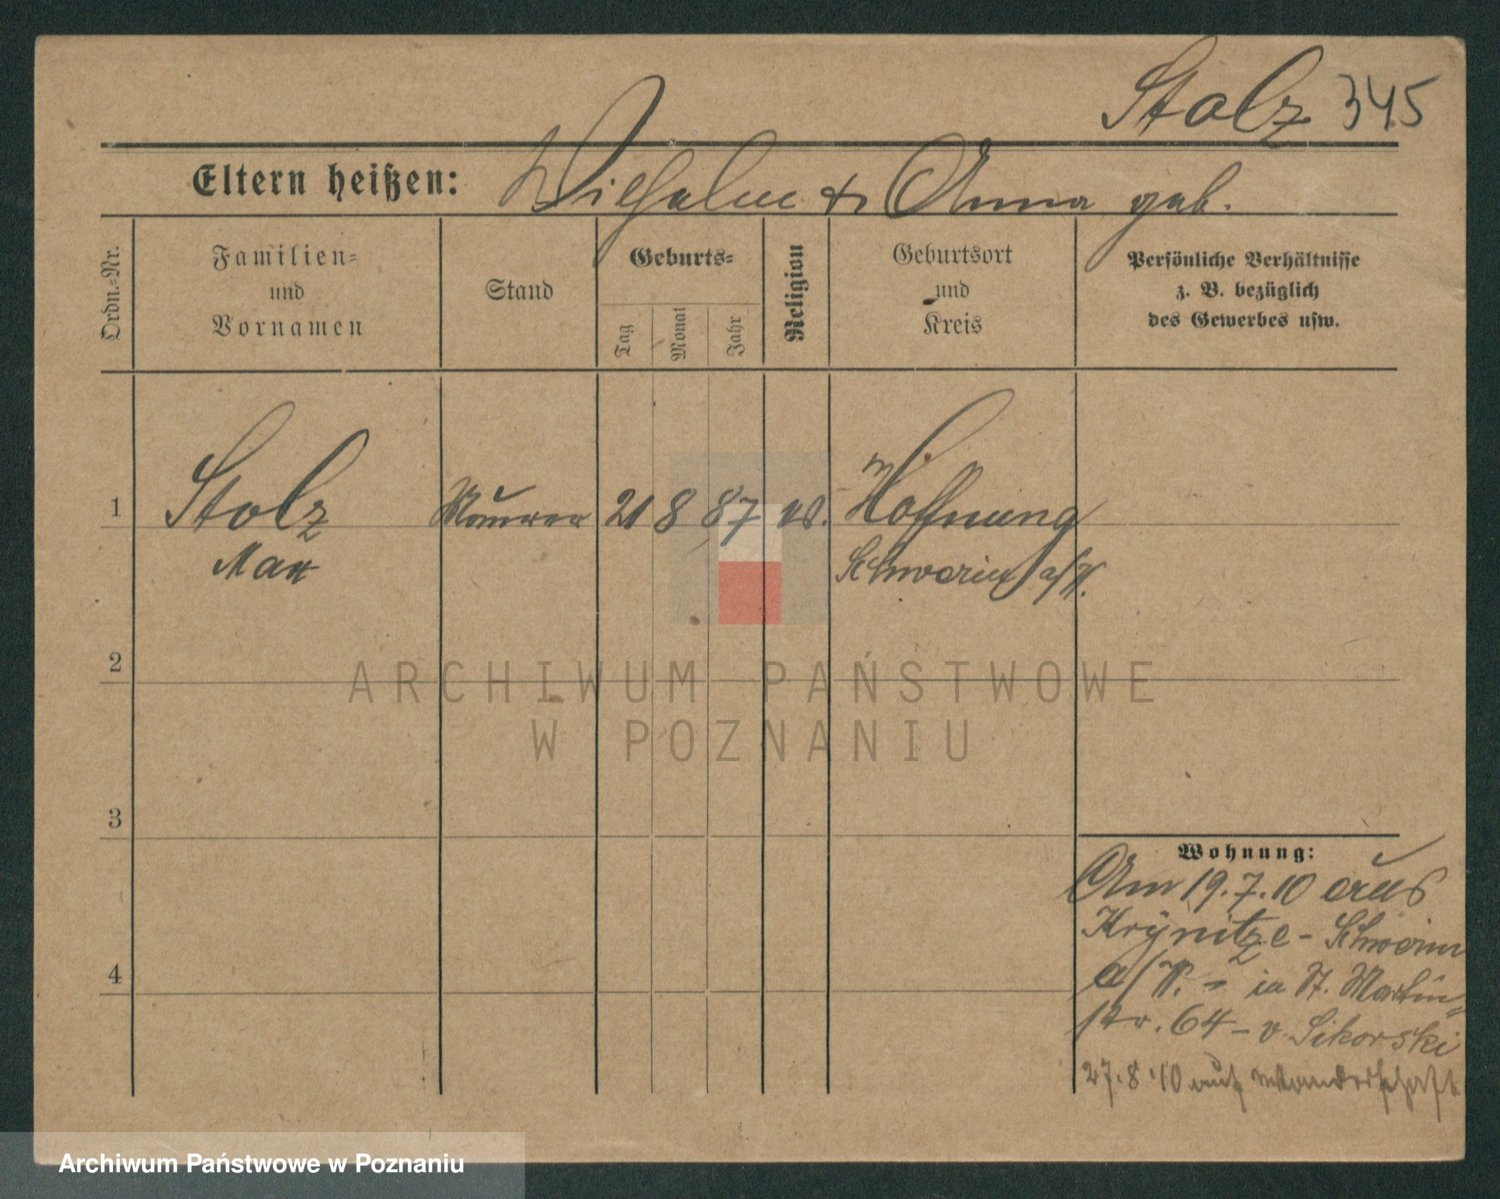 Stolz 345
Eltern heißen: Wilhelm & Anna geb.
Ordn.=Nr.
Familien=
und
Vornamen
Stand
Geburts=
Tag
Monat
Jahr
Religion
Geburtsort
und
Kreis
Persönliche Verhältnisse
z. B. bezüglich
des Gewerbes usw.
1 Stolz Maurer 21 8 87 Hoffnung
Max Schwerin a/W.
2
ARCHIWUM PAŃSTWOWE
W POZNANIU
3
Wohnung:
Am 19.7.10 aus
Krÿnitze - Schwerin
a/W. - in St. Martin=
str. 64 - v. Sikorski
4
27.8.10 auf Wanderschaft
Archiwum Państwowe w Poznaniu